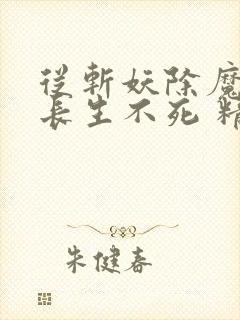 從斬妖除魔
長生不死 精
朱健春